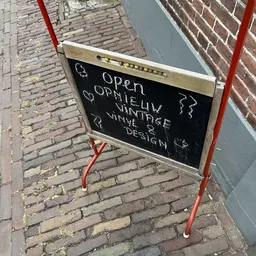 Open
OPNIEUW
VINTAGE
VINYL &
DESIGN